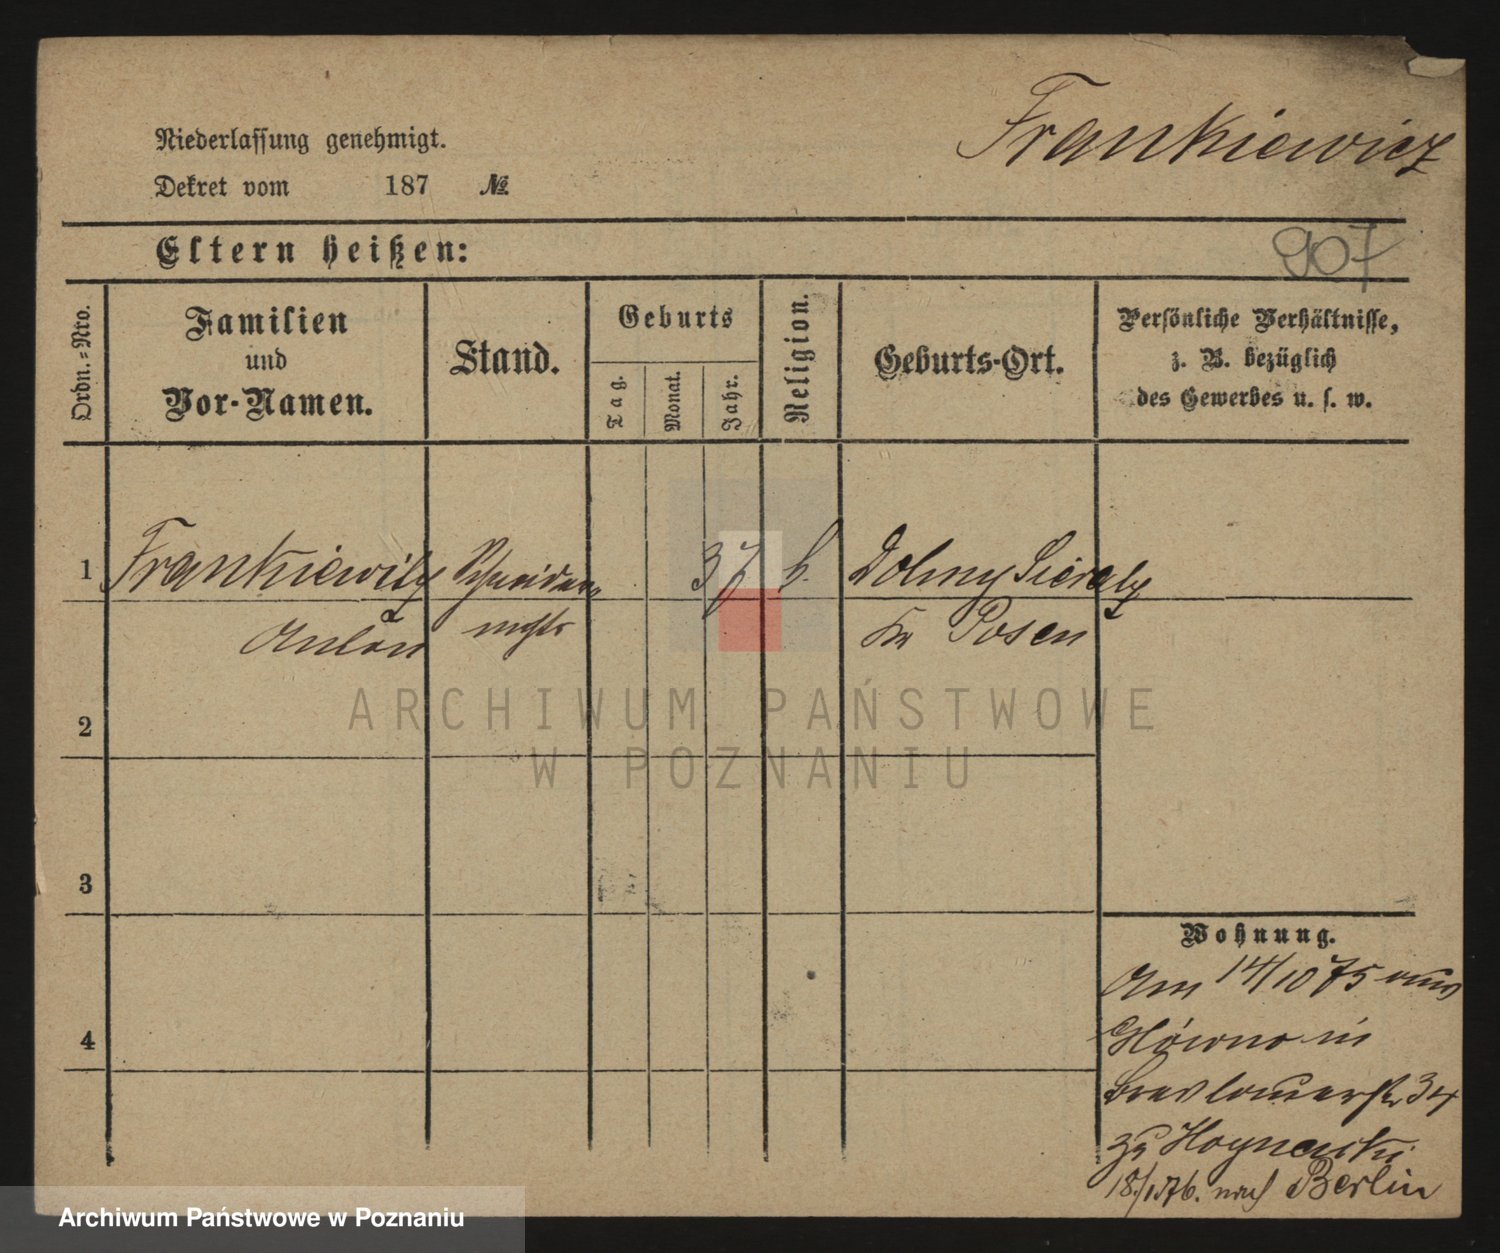 Frankiewicz
Niederlassung genehmigt.
Dekret vom 187 №
Eltern heißen:
907
Ordn.=Nro.
Familien
und
Vor-Namen.
Stand.
Geburts
Tag.
Monat.
Jahr.
Religion.
Geburts-Ort.
Persönliche Verhältnisse,
z. B. bezüglich
des Gewerbes u. s. w.
1 Frankiewicz Schneider- 37 k. Dolny
Anton Kr Posen
ARCHIWUM PAŃSTWOWE
W POZNANIU
2
3
4
Wohnung.
Am 14/10 75 aus
Główno in
Breslauerstr 34
zu
18./1.76. nach Berlin
Archiwum Państwowe w Poznaniu